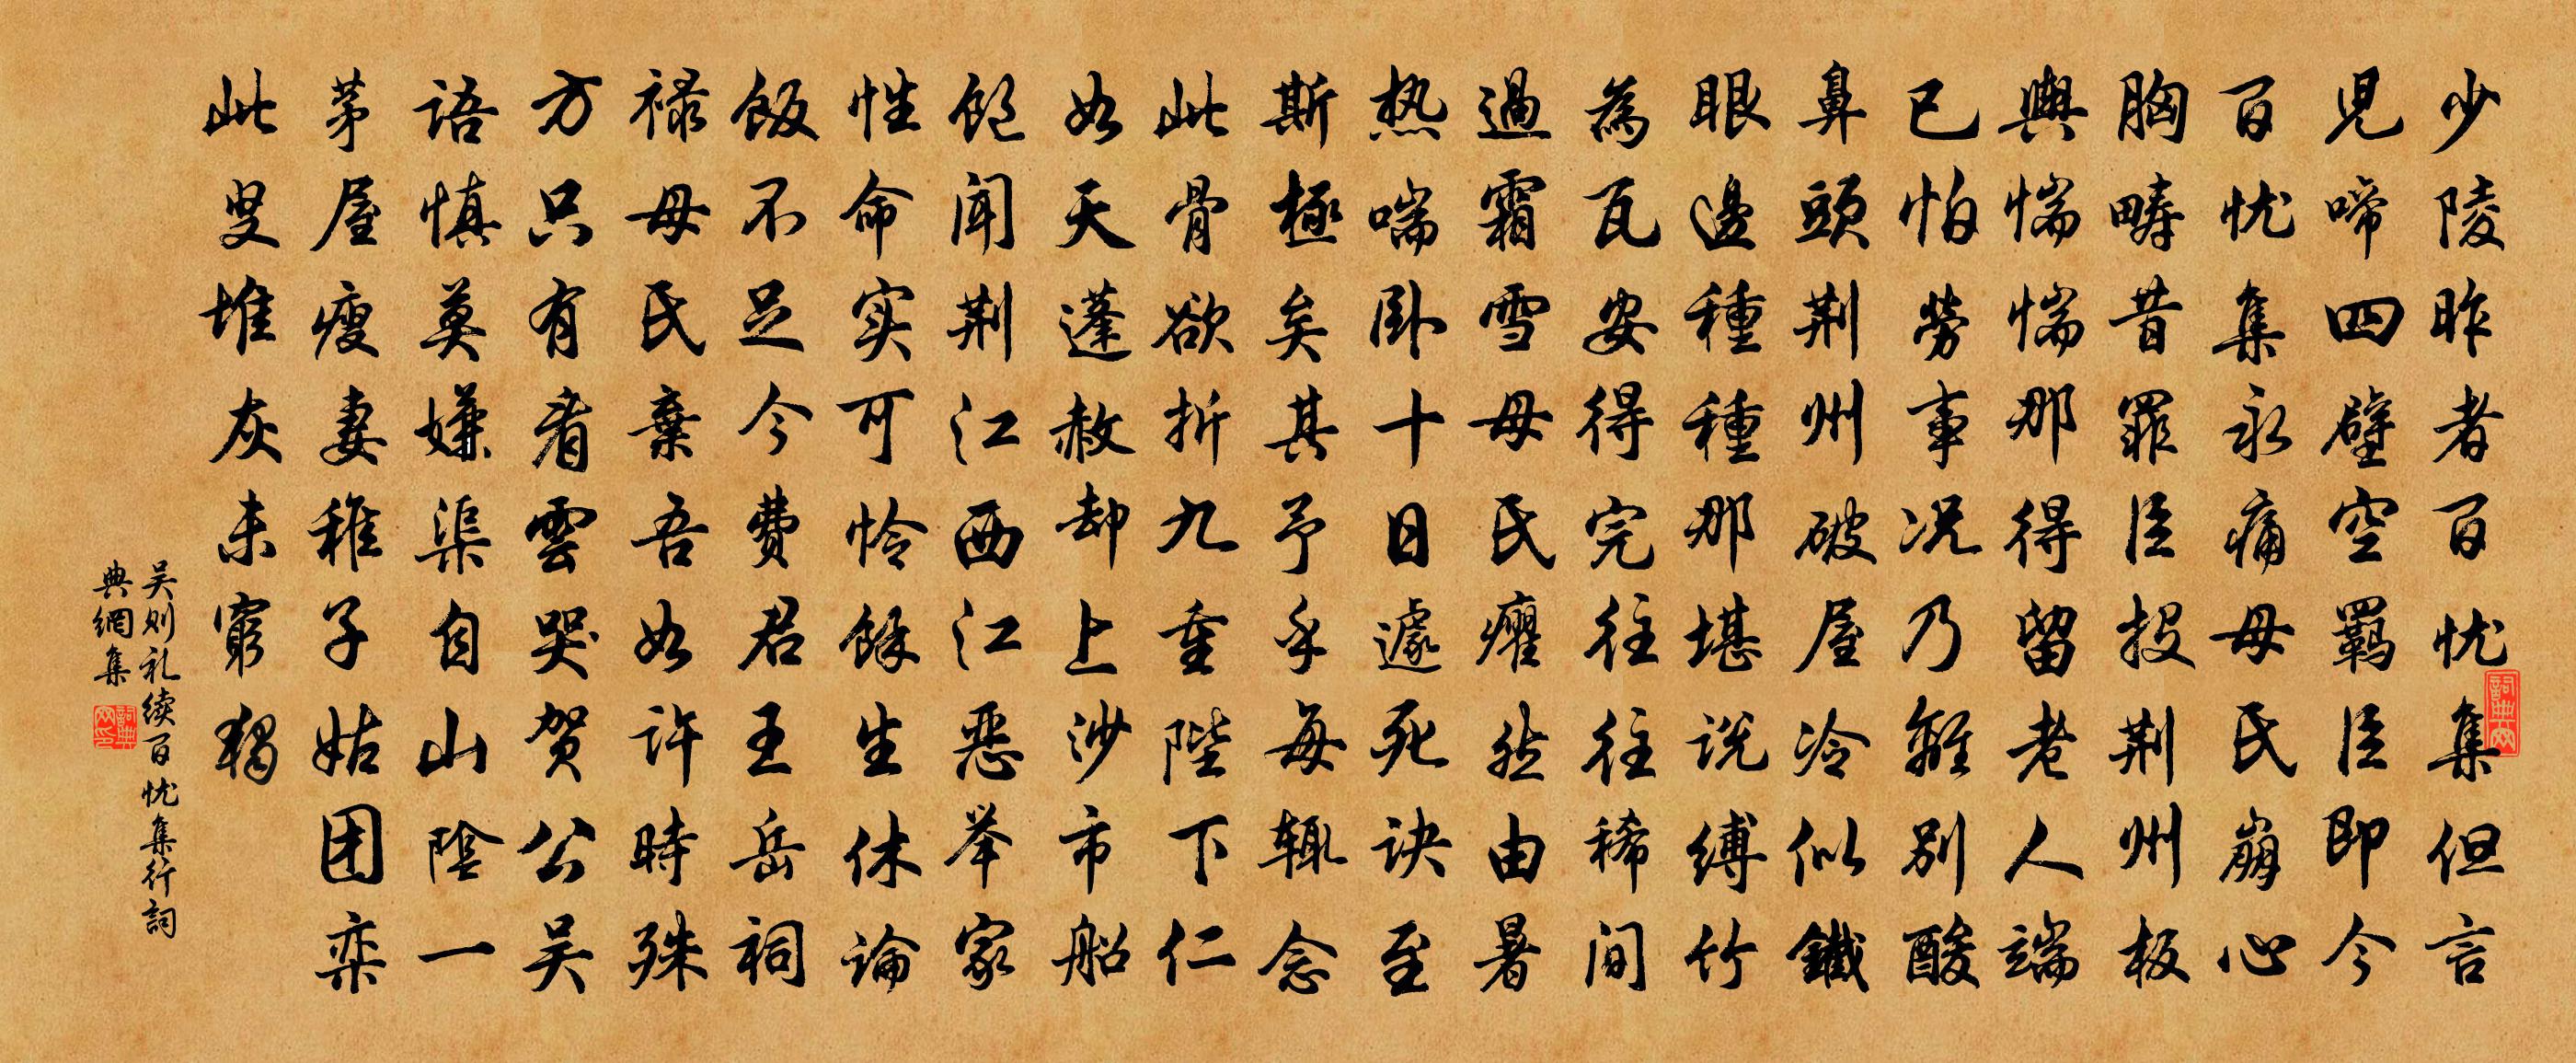 少陵昨者百忧集但言
児啼四壁空羁臣即今
百忧集永痛母氏崩心
胸畴昔罪臣投荆州板
舆惴惴那得留老人端
已怕劳事况乃離别酸
鼻頭荆州破屋冷似鐵
眼邊種種那堪説缚竹
為瓦安得完往往稀间
過霜雪母氏癯然由暑
热喘卧十日遽死诀至
斯極矣其予乎每辄念
此骨欲折九重陛下仁
如天蓬赦却上沙市船
飽闻荆江西江惡举家
性命实可怜餘生休論
飯不足今费君王岳祠
禄母氏棄吾如许時殊
方只有看雲哭贺公吴
語慎莫嫌渠自山陰一
茅屋瘦妻稚子姑团栾
此叟堆灰未窮獨
吴则礼续百忧集行詞
典網集
詞典网
詞典网印